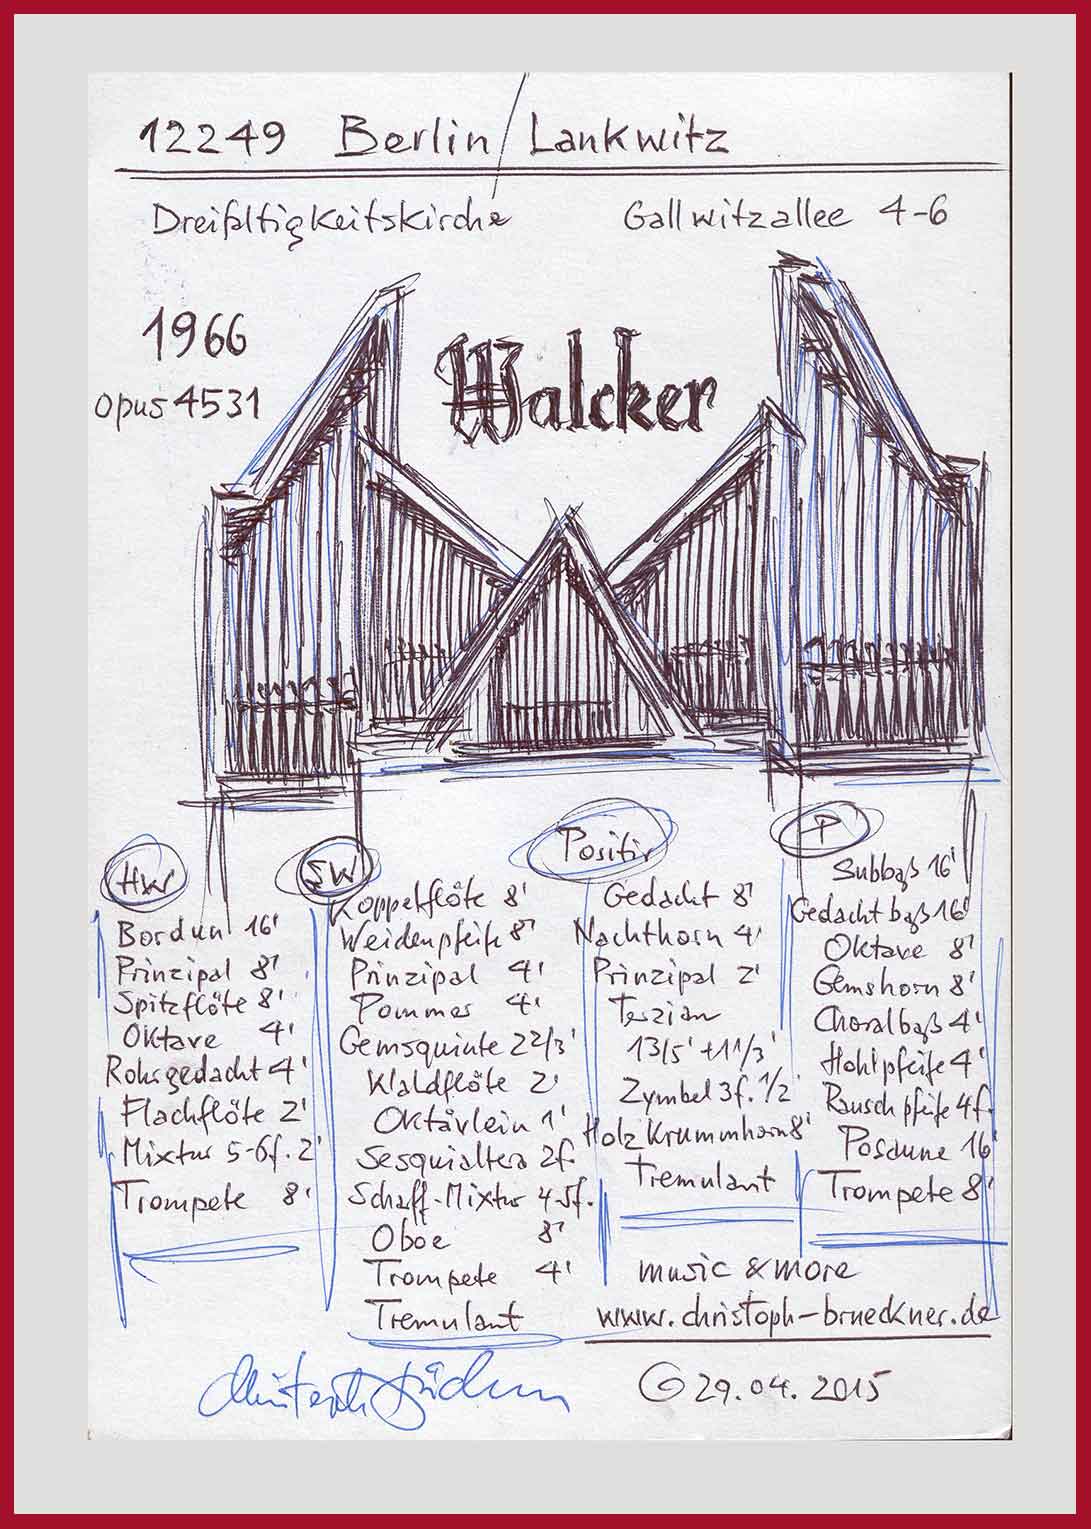 12249 Berlin/Lankwitz
Dreifaltigkeitskirche Gallwitzallee 4-6
1966
opus 4531
Walcker
HW
Bordun 16'
Prinzipal 8'
Spitzflöte 8'
Oktave 4'
Rohrgedacht 4'
Flachflöte 2'
Mixtur 5-6f. 2'
Trompete 8'
SW
Koppelflöte 8'
Weidenpfeife 8'
Prinzipal 4'
Pommer 4'
Gemsquinte 2 2/3'
Waldflöte 2'
Oktävlein 1'
Sesquialtera 2f.
Scharff-Mixtur 4-5f.
Oboe 8'
Trompete 4'
Tremulant
Positiv
Gedackt 8'
Nachthorn 4'
Prinzipal 2'
Terzian
1 3/5' + 1 1/3'
Zymbel 3f. 1/2'
Holz Krummhorn 8'
Tremulant
P
Subbaß 16'
Gedacktbaß 16'
Oktave 8'
Gemshorn 8'
Choralbaß 4'
Hohlpfeife 4'
Rauschpfeife 4f.
Posaune 16'
Trompete 8'
music & more
www.christoph-brueckner.de
© 29.04.2015